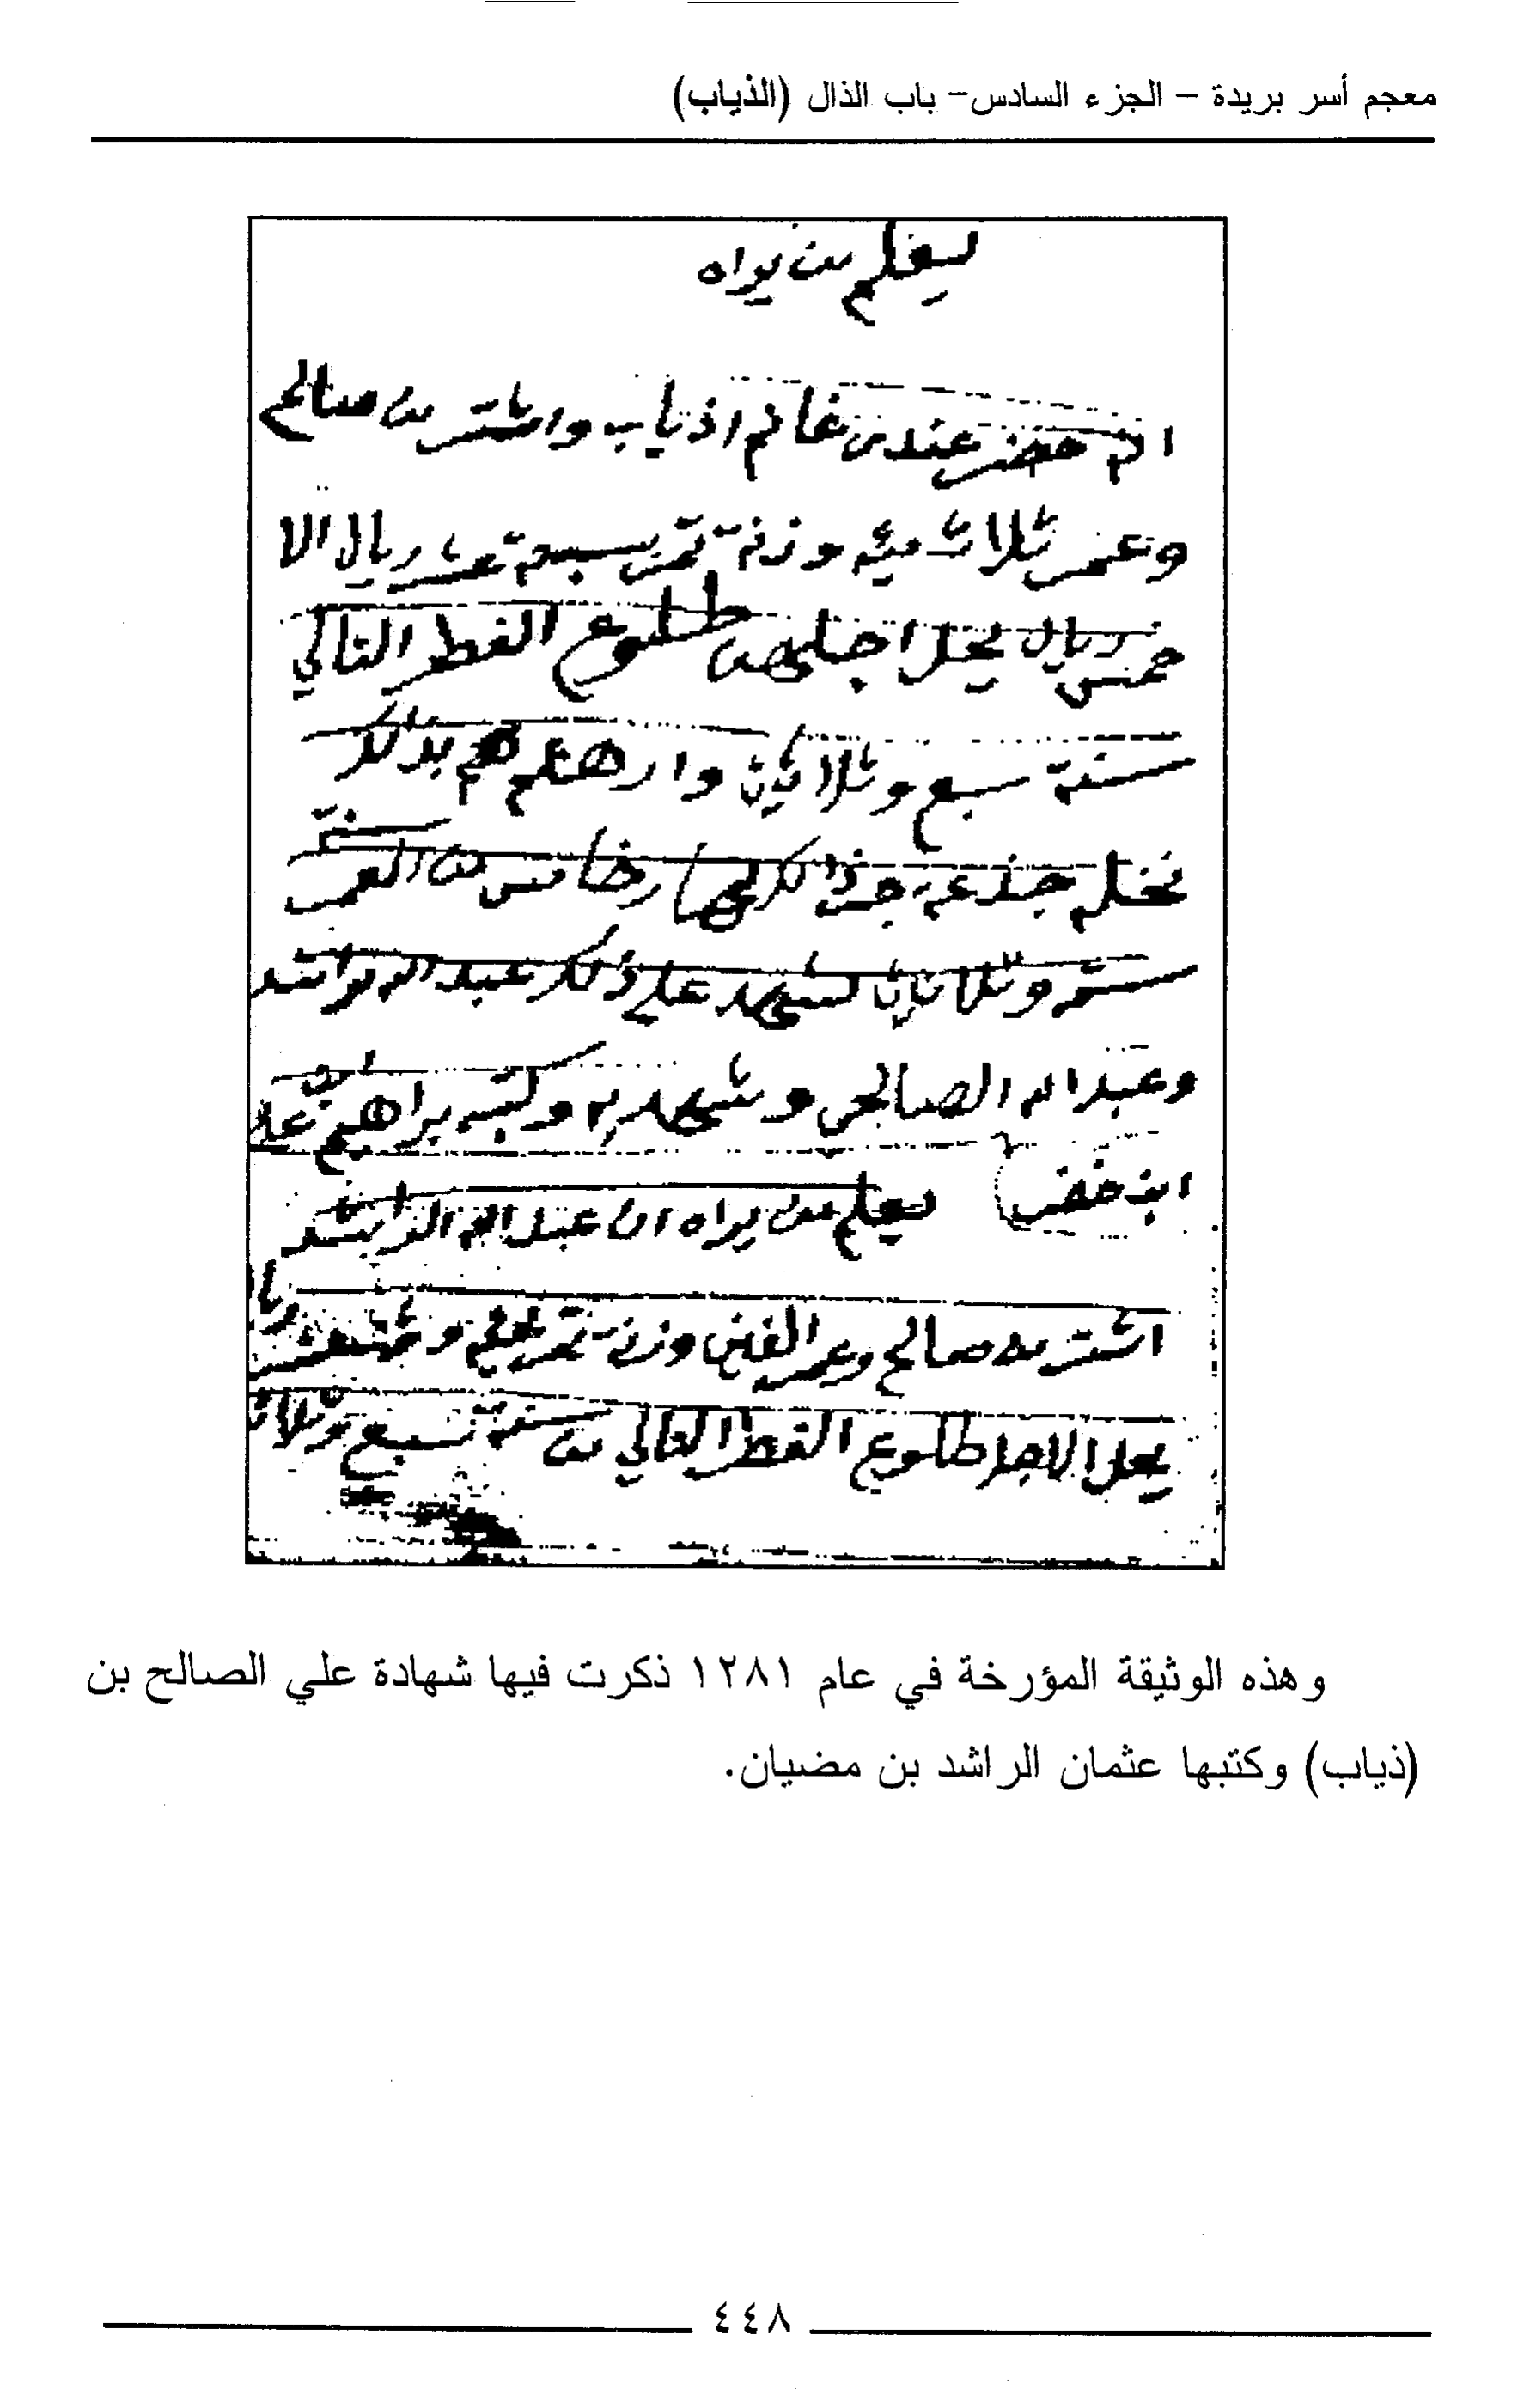 معجم أسر بريدة – الجزء السادس– باب الذال (الذياب)
ليعلم من يراه
انه حضر عندي غانم اذياب واشتر من صالح
وعمر ثلاث مية وزنة تمر بسبعة عشر ريال الا
خمس ريال يحل اجلهن طلوع الفطر التالي
سنة سبع وثلاثين وارهنهم بذلك
نخله جذعه جذاذ خامس من العمر سنة
ستة وثلاثين شهد على ذلك عبدالله بن راشد
وعبدالله الصالحي وشهد به وكتبه براهيم
ابن خضر ليعلم من يراه ان عبدالله الراشد
اشتر من صالح وعمر الفين وزنة تمر وعشر ريال
يحل الاجل طلوع الفطر التالي من سنة سبع وثلاث
وهذه الوثيقة المؤرخة في عام ١٢٨١ ذكرت فيها شهادة علي الصالح بن
(ذياب) وكتبها عثمان الراشد بن مضيان.
٤٤٨